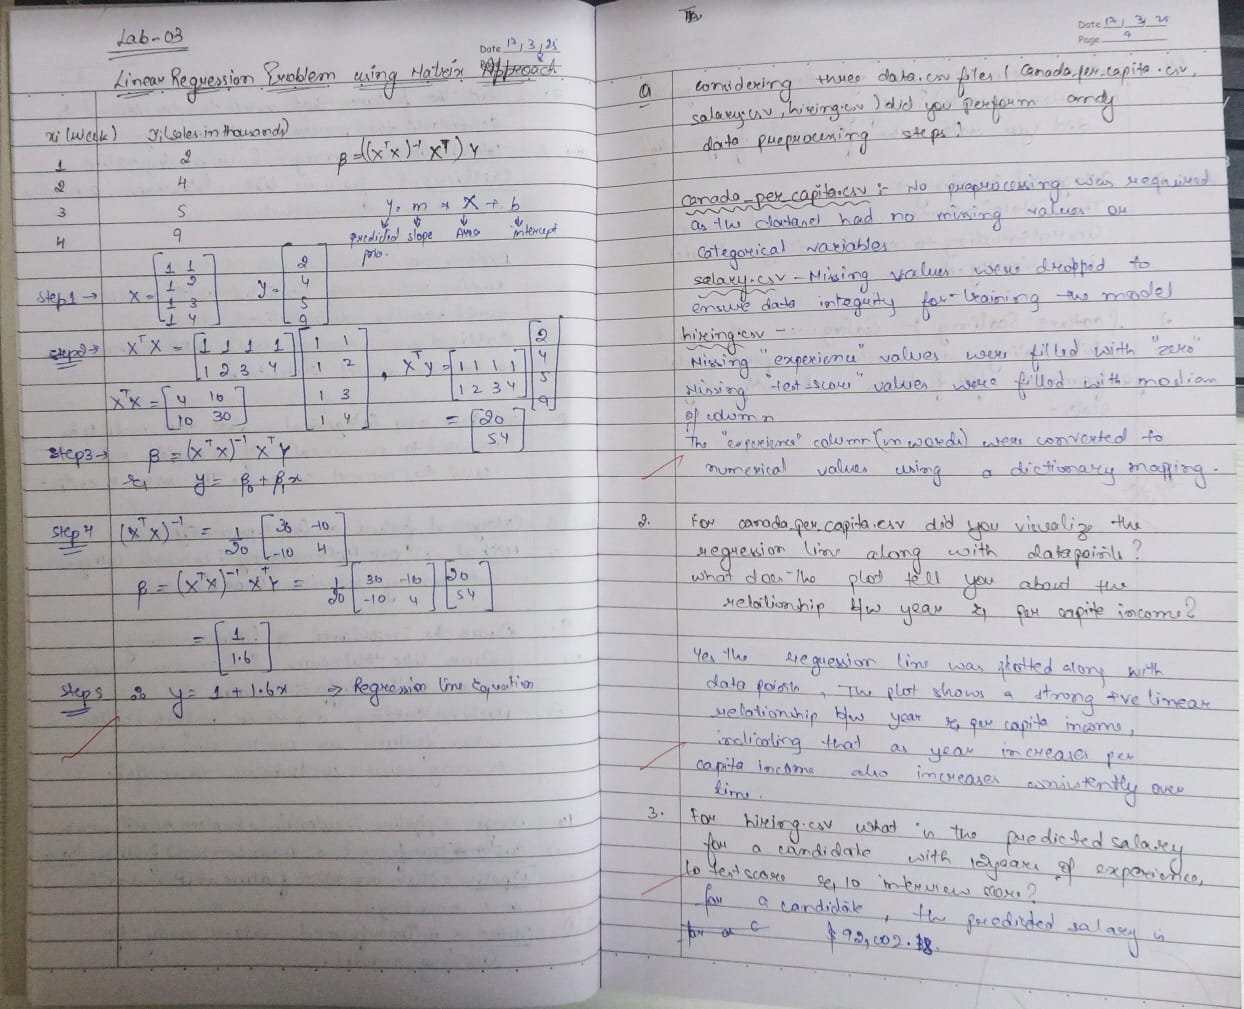 Lab-03
Date 17/3/25
Linear Regression Problem using Matrix Approach
xi (Week) yi (sales in thousands)
1 2
2 4
3 5
4 9
β = ((XᵀX)⁻¹ Xᵀ) Y
y = m * X + b
predicted slope Area intercept
pro.
Step1 → X = [1 1
1 2
1 3
1 4] y = [2
4
5
9]
Step2 → XᵀX = [1 1 1 1
1 2 3 4] [1 1
1 2
1 3
1 4] , XᵀY = [1 1 1 1
1 2 3 4] [2
4
5
9]
XᵀX = [4 10
10 30] = [20
54]
Step3 → β = (XᵀX)⁻¹ XᵀY
& y = β₀ + β₁x
Step 4 (XᵀX)⁻¹ = 1/20 [30 -10
-10 4]
β = (XᵀX)⁻¹ XᵀY = 1/20 [30 -10
-10 4] [20
54]
= [1
1.6]
Step 5 ∴ y = 1 + 1.6x ⇒ Regression line Equation
Date 17/3/25
Page 9
Q considering three data.csv files (Canada_per_capita.csv,
salary.csv, hiring.csv) did you perform any
data preprocessing steps?
Canada_per_capita.csv :- No preprocessing was required
as the dataset had no missing values or
Categorical variables
salary.csv - Missing values were dropped to
ensure data integrity for training the model
hiring.csv -
Missing "experience" values were filled with "zero"
Missing "test-score" values were filled with median
of column
The "experience" column (in words) were converted to
numerical values using a dictionary mapping.
2. For canada_per_capita.csv did you visualize the
regression line along with datapoints?
what does the plot tell you about the
relationship b/w year & per capita income?
Yes the regression line was plotted along with
data points, The plot shows a strong +ve linear
relationship b/w year & per capita income,
indicating that as year increases per
capita income also increases consistently over
time.
3. For hiring.csv what is the predicted salary
for a candidate with 12 years of experience,
10 test score & 10 interview score?
for a candidate, the predicted salary is
for a c $92,002.18.